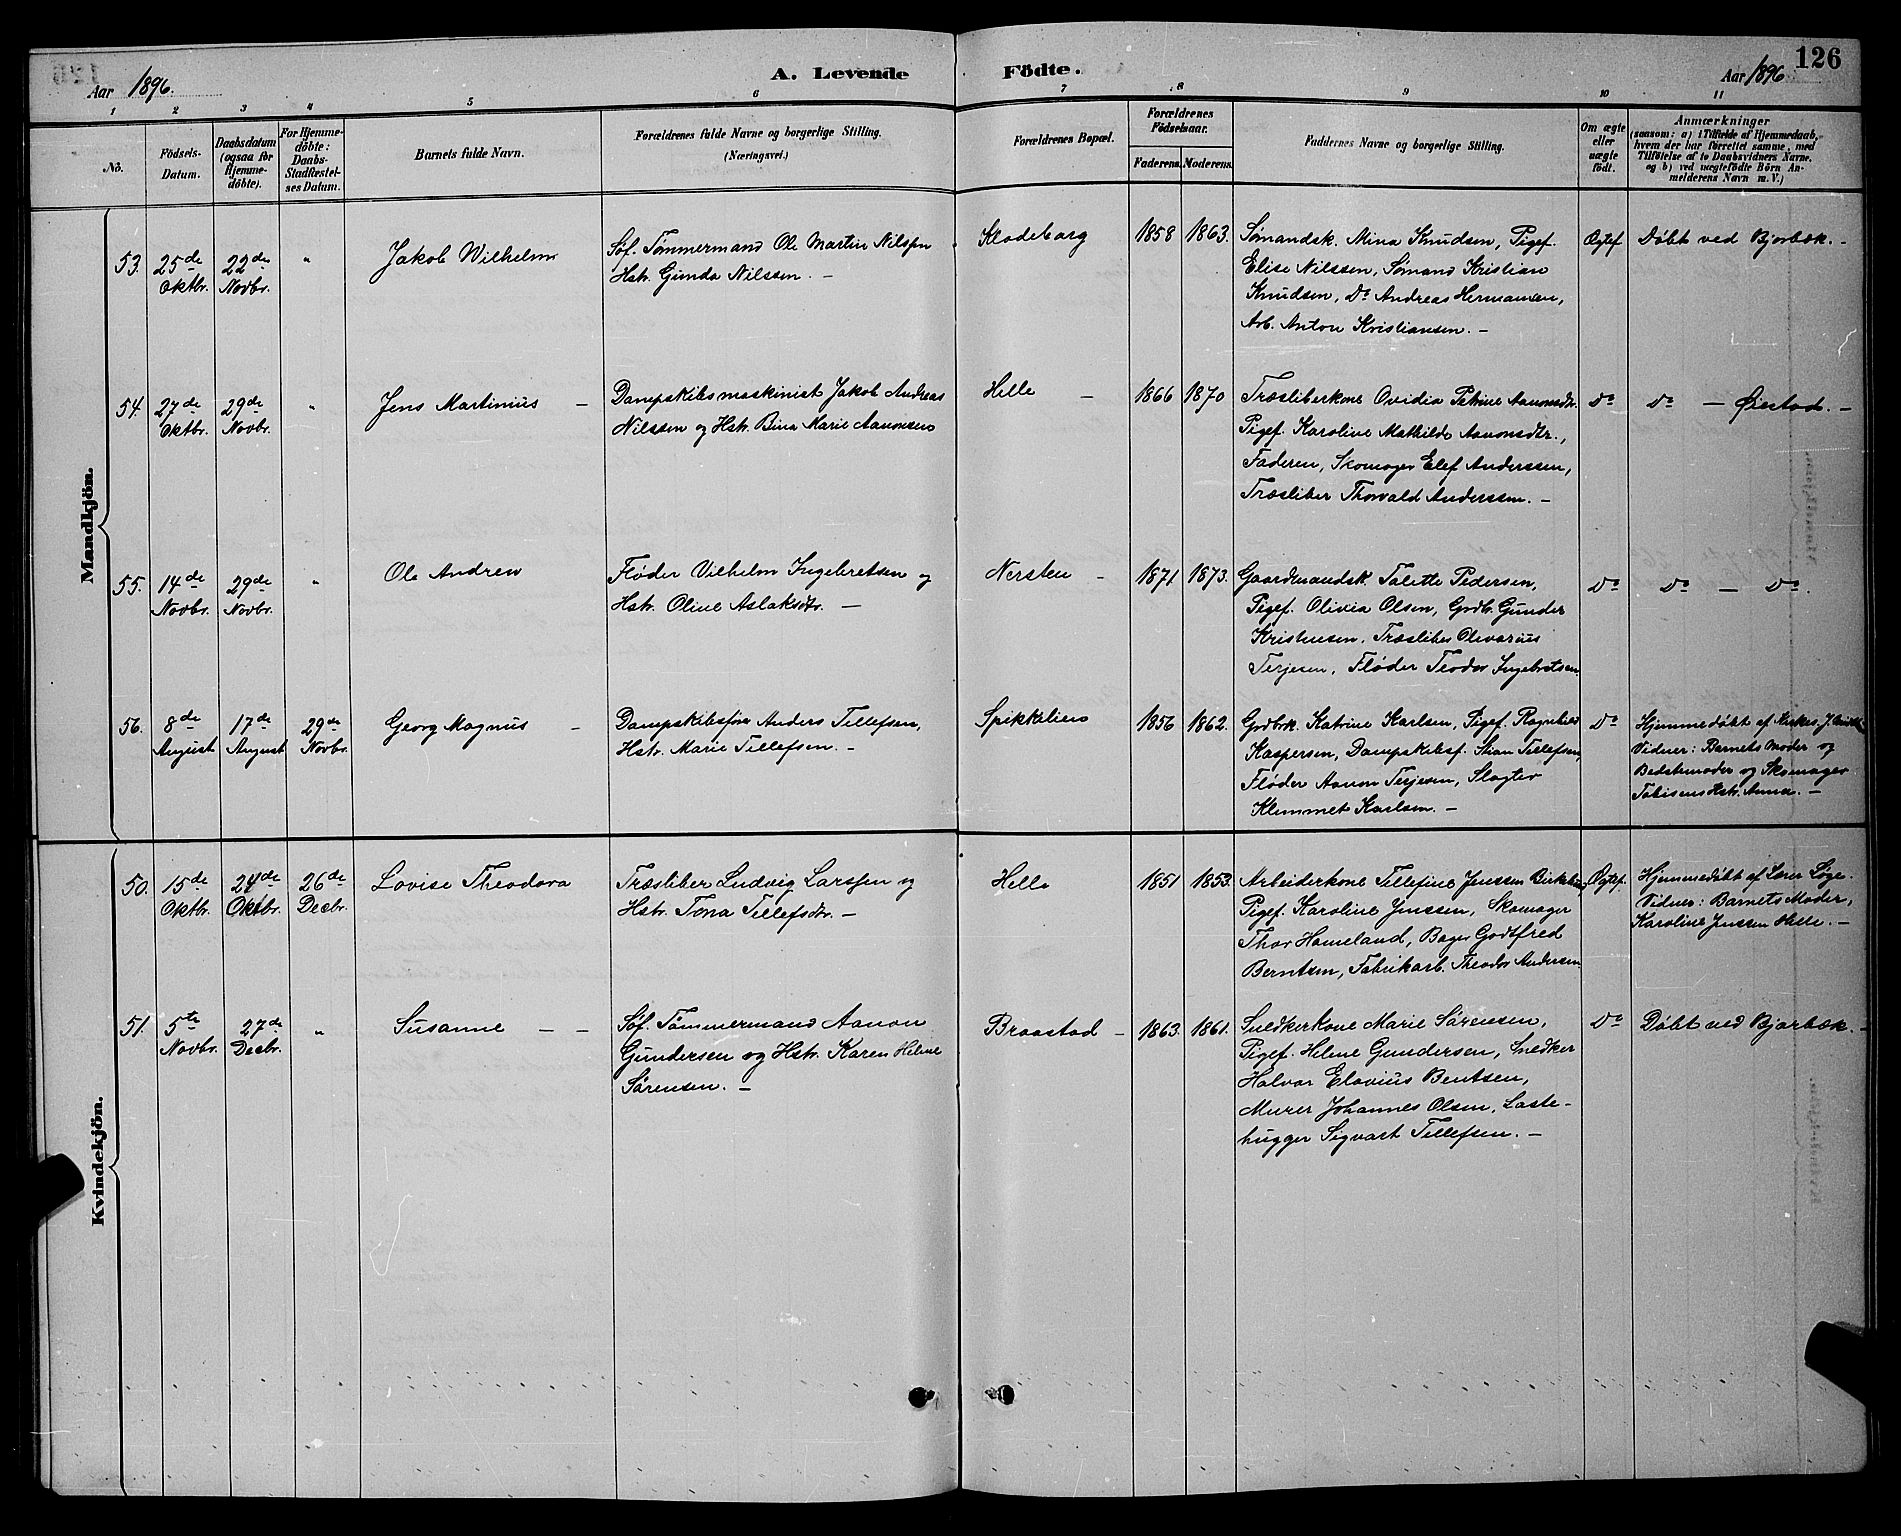 126
Aar 1896.
A. Levende Födte.
Aar 1896
1 2 3 4 5 6 7 8 9 10 11
No.
Födsels-
Datum.
Daabsdatum
(ogsaa for
Hjemme-
döbte).
For Hjemme-
döbte:
Daabs-
Stadfæstel-
ses Datum.
Barnets fulde Navn.
Forældrenes fulde Navne og borgerlige Stilling.
(Næringsvei.)
Forældrenes Bopæl.
Forældrenes
Födselsaar.
Faderens. Moderens.
Faddernes Navne og borgerlige Stilling.
Om ægte
eller
uægte
födt.
Anmærkninger
(saasom: a) i Tilfælde af Hjemmedaab,
hvem der har forrettet samme, med
Tilföielse af to Daabsvidners Navne,
og b) ved uægtefödte Börn An-
melderens Navn m. V.)
Mandkjön.
53. 25de Oktbr. 22de Novbr. " Jakob Wilhelm
Søf. Tømmermand Ole Martin Nilssen
Hstr. Gunda Nilssen. –
Klodeborg 1858 1863.
Sømandsk. Mina Knudsen, Pigef.
Elise Nilssen, Sømand Kristian
Knudsen, Do Andreas Hermansen,
Arb. Anton Kristiansen. –
Ægtef. Døbt ved Bjorbæk. –
54. 27de Oktbr. 29de Novbr. " Jens Martinius –
Dampskibsmaskinist Jakob Andreas
Nilssen og Hstr. Bina Marie Aanonsen
Helle – 1866 1870
Træsliberkone Ovidia Petrine Aanonsdtr.
Pigef. Karoline Mathilde Aanonsdtr.,
Faderen, Skomager Elef Anderssen,
Træsliber Thorvald Anderssen. –
Do Do – Øiestad. –
55. 14de Novbr. 29de Novbr. " Ole Andrew
Fløder Vilhelm Ingebretsen og
Hstr. Oline Aslaksdtr. –
Nersten – 1871 1873.
Gaardmandsk. Talette Pedersen,
Pigef. Olivia Olsen, Grdbr. Gunder
Kristensen, Træsliber Olivarius
Terjesen, Fløder Teodor Ingebretsen
Do Do – Do.
56. 8de August 17de August 29de Novbr. Georg Magnus –
Dampskibsfører Anders Tellefsen,
Hstr. Marie Tellefsen. –
Spikkelien 1856 1862.
Grdbrk. Katrine Karlsen, Pigef. Ragnhild
Kaspersen, Dampskibsf. Stian Tellefsen,
Fløder Aanon Terjesen, Slagter
Klemmet Karlsen. –
Do Hjemmedøbt af Kirkes.
Vidner: Barnets Moder og
Bedstemoder og Skomager
Tobisens Hstr. Anna. –
Kvindekjön.
50. 15de Oktbr. 24de Oktbr. 26de Decbr. Lovise Theodora
Træsliber Ludvig Larssen og
Hstr. Tona Tellefsdtr. –
Helle 1851 1853.
Arbeiderkone Tellefine Jenssen
Pigef. Karoline Jenssen, Skomager
Thor Hameland, Bager Godtfred
Berntsen, Fabrikarb. Theodor Andersen
Ægtef. Hjemmedøbt af Lærer Løge.
Vidner: Barnets Moder,
Karoline Jenssen Helle. –
51. 5te Novbr. 27de Decbr. " Susanne – –
Søf. Tømmermand Aanon
Gundersen og Hstr. Karen Helene
Sørensen. –
Braastad – 1863. 1861.
Snedkerkone Marie Sørensen,
Pigef. Helene Gundersen, Snedker
Halvor Elovius Bentsen,
Murer Johannes Olsen, Laste-
hugger Sigvart Tellefsen. –
Do Døbt ved Bjorbæk. –